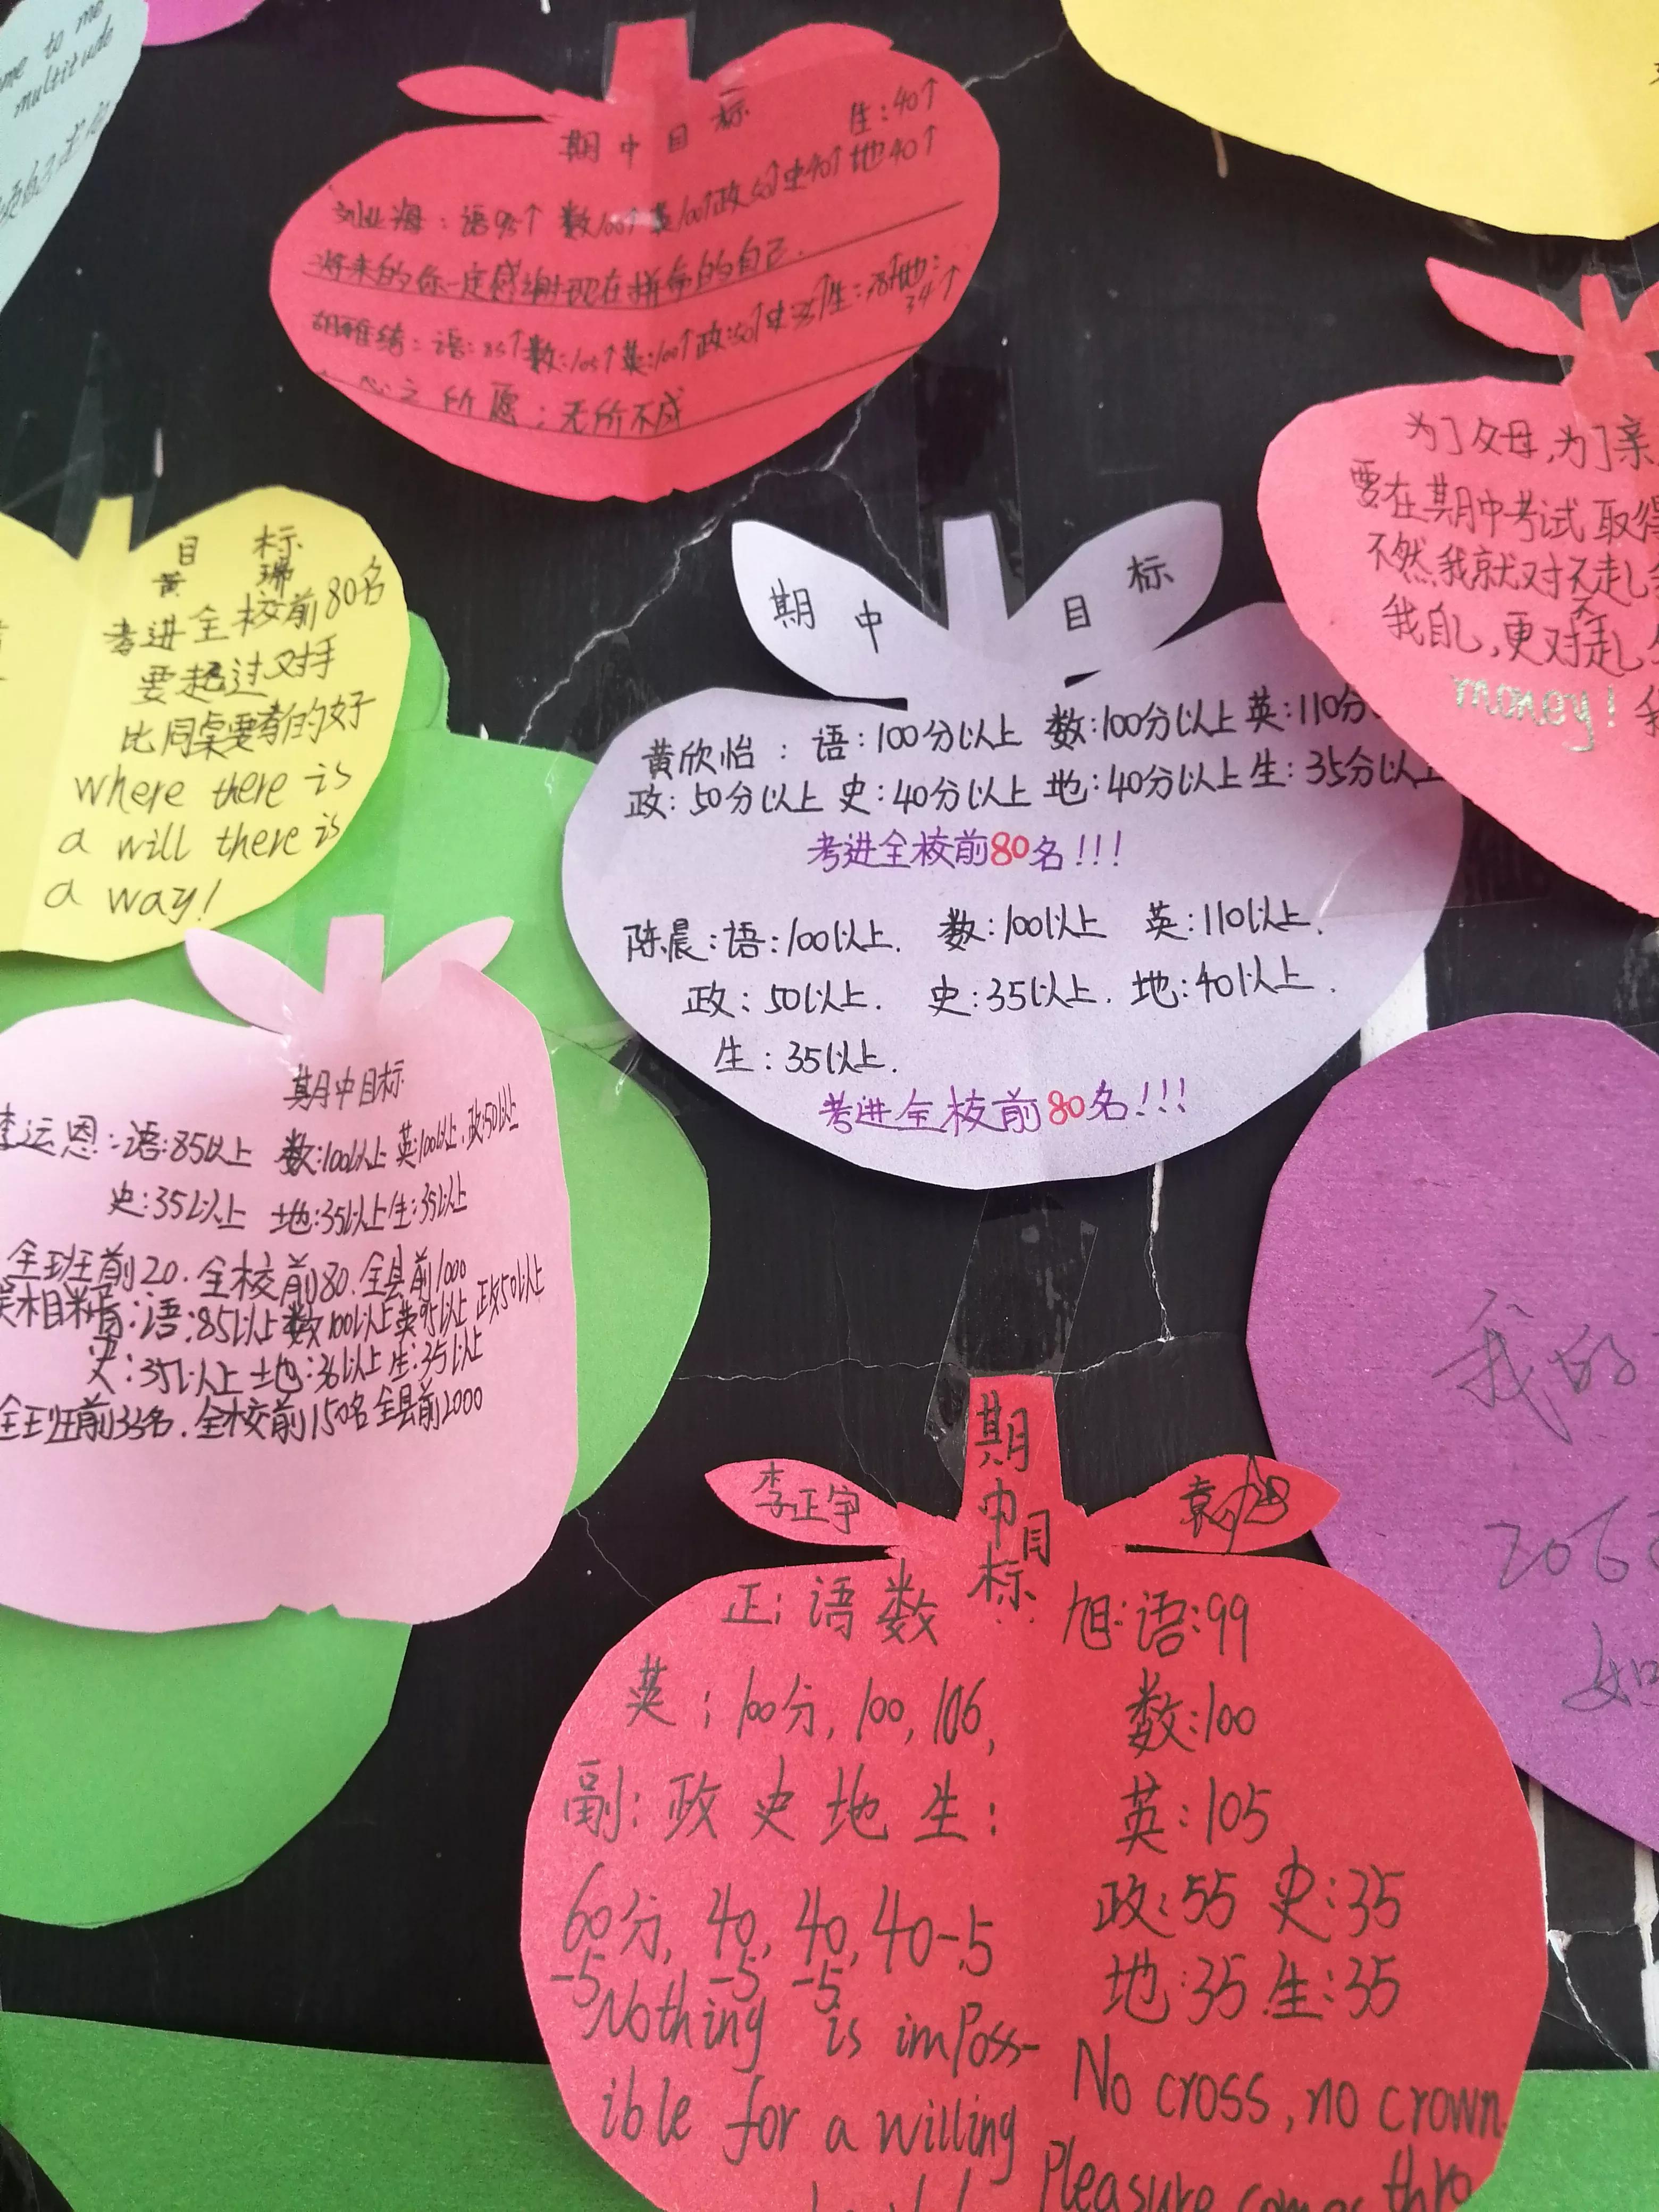 me to me
multitude
期中目标
生:40↑
刘业海:语95↑ 数100↑ 英100↑政50↑史40↑地40↑
将来的你一定感谢现在拼命的自己.
胡雅绮:语:85↑数:105↑英:100↑政:50↑史35↑生:38↑地:34↑
心之所愿;无所不成
目 标
黄 瑞
考进全校前80名
要超过对手
比同桌要考的好
where there is
a will there is
a way!
期中目标
黄欣怡:语:100分以上 数:100分以上 英:110分
政:50分以上 史:40分以上 地:40分以上 生:35分以上
考进全校前80名!!!
陈晨:语:100以上. 数:100以上 英:110以上.
政:50以上. 史:35以上. 地:40以上.
生:35以上.
考进全校前80名!!!
为了父母,为了亲
要在期中考试取得
不然我就对不起
我自己,更对不起
money! 我
期中目标
李运恩:语:85以上 数:100以上 英:100以上.政:50以上
史:35以上 地:35以上 生:35以上
全班前20.全校前80.全县前1000
相精:语:85以上 数100以上 英95以上 政50以上
史:35以上 地:36以上 生:35以上
全班前33名.全校前150名 全县前2000
我的
206
如
李正宇
期中目标
袁旭
正:语数
英:100分,100,106,
副:政史地生:
60分,40,40,40-5
-5 -5 -5
Nothing is imposs-
ible for a willing
旭:语:99
数:100
英:105
政:55 史:35
地:35 生:35
No cross, no crown.
Pleasure comes thro